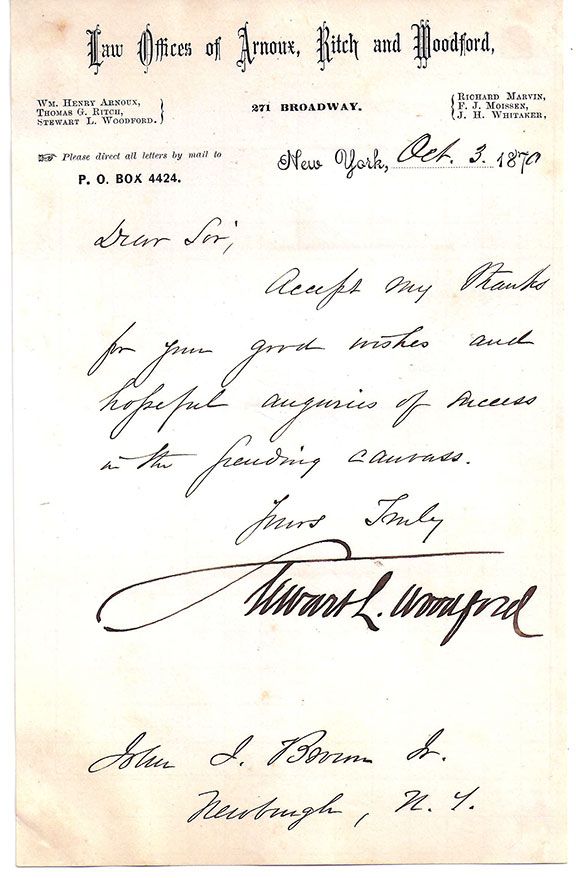 Law Offices of Arnoux, Ritch and Woodford,
Wm. Henry Arnoux,
Thomas G. Ritch,
Stewart L. Woodford.
271 BROADWAY.
Richard Marvin,
F. J. Moissen,
J. H. Whitaker,
☞ Please direct all letters by mail to
P. O. BOX 4424.
New York, Oct. 3. 1870
Dear Sir,
Accept my thanks
for your good wishes and
hopeful auguries of success
in the pending canvass.
Yours Truly
Stewart L. Woodford
John J. Brown Jr.
Newburgh, N. Y.